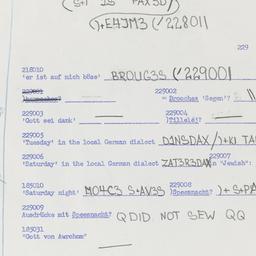 )+E4JM3 (/228011
229
218010
'er ist auf mich böse' BROUG3S (/229001
229002
= Droochen 'Segen'?
229003
'Gott sei dank'
229004
)Tilleléj?
229005
'Tuesday' in the local German dialect D1NSDAX
229006
'Saturday' in the local German dialect ZAT3R3DAX
229007
in "Jewish":
185010
'Saturday night' MO4C3 S+AV3S
229008
)Speesnacht?
229009
Ausdrücke mit Speesnacht? QDID NOT SEW QQ
185031
"Gott von Awrohom"